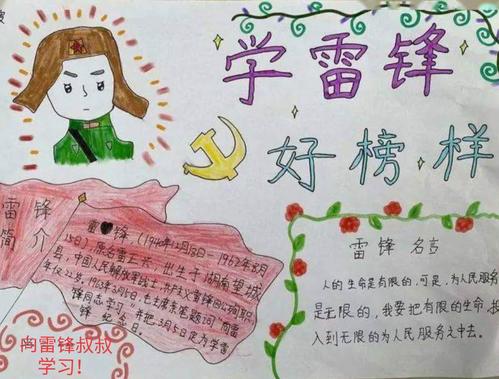 学雷锋
好榜样
雷锋
简介
雷锋,(1940年12月18日-1962年8月
15日),原名雷正兴,出生于湖南望城
县,中国人民解放军战士,共产主义雷锋因公殉职
年仅22岁,1963年3月5日,毛主席亲笔题词"向雷
锋同志学习",并把3月5日定为学雷
锋 纪念日。
雷锋 名言
人的生命是有限的,可是,为人民服务
是无限的,我要把有限的生命,投
入到无限的为人民服务之中去。
向雷锋叔叔
学习!